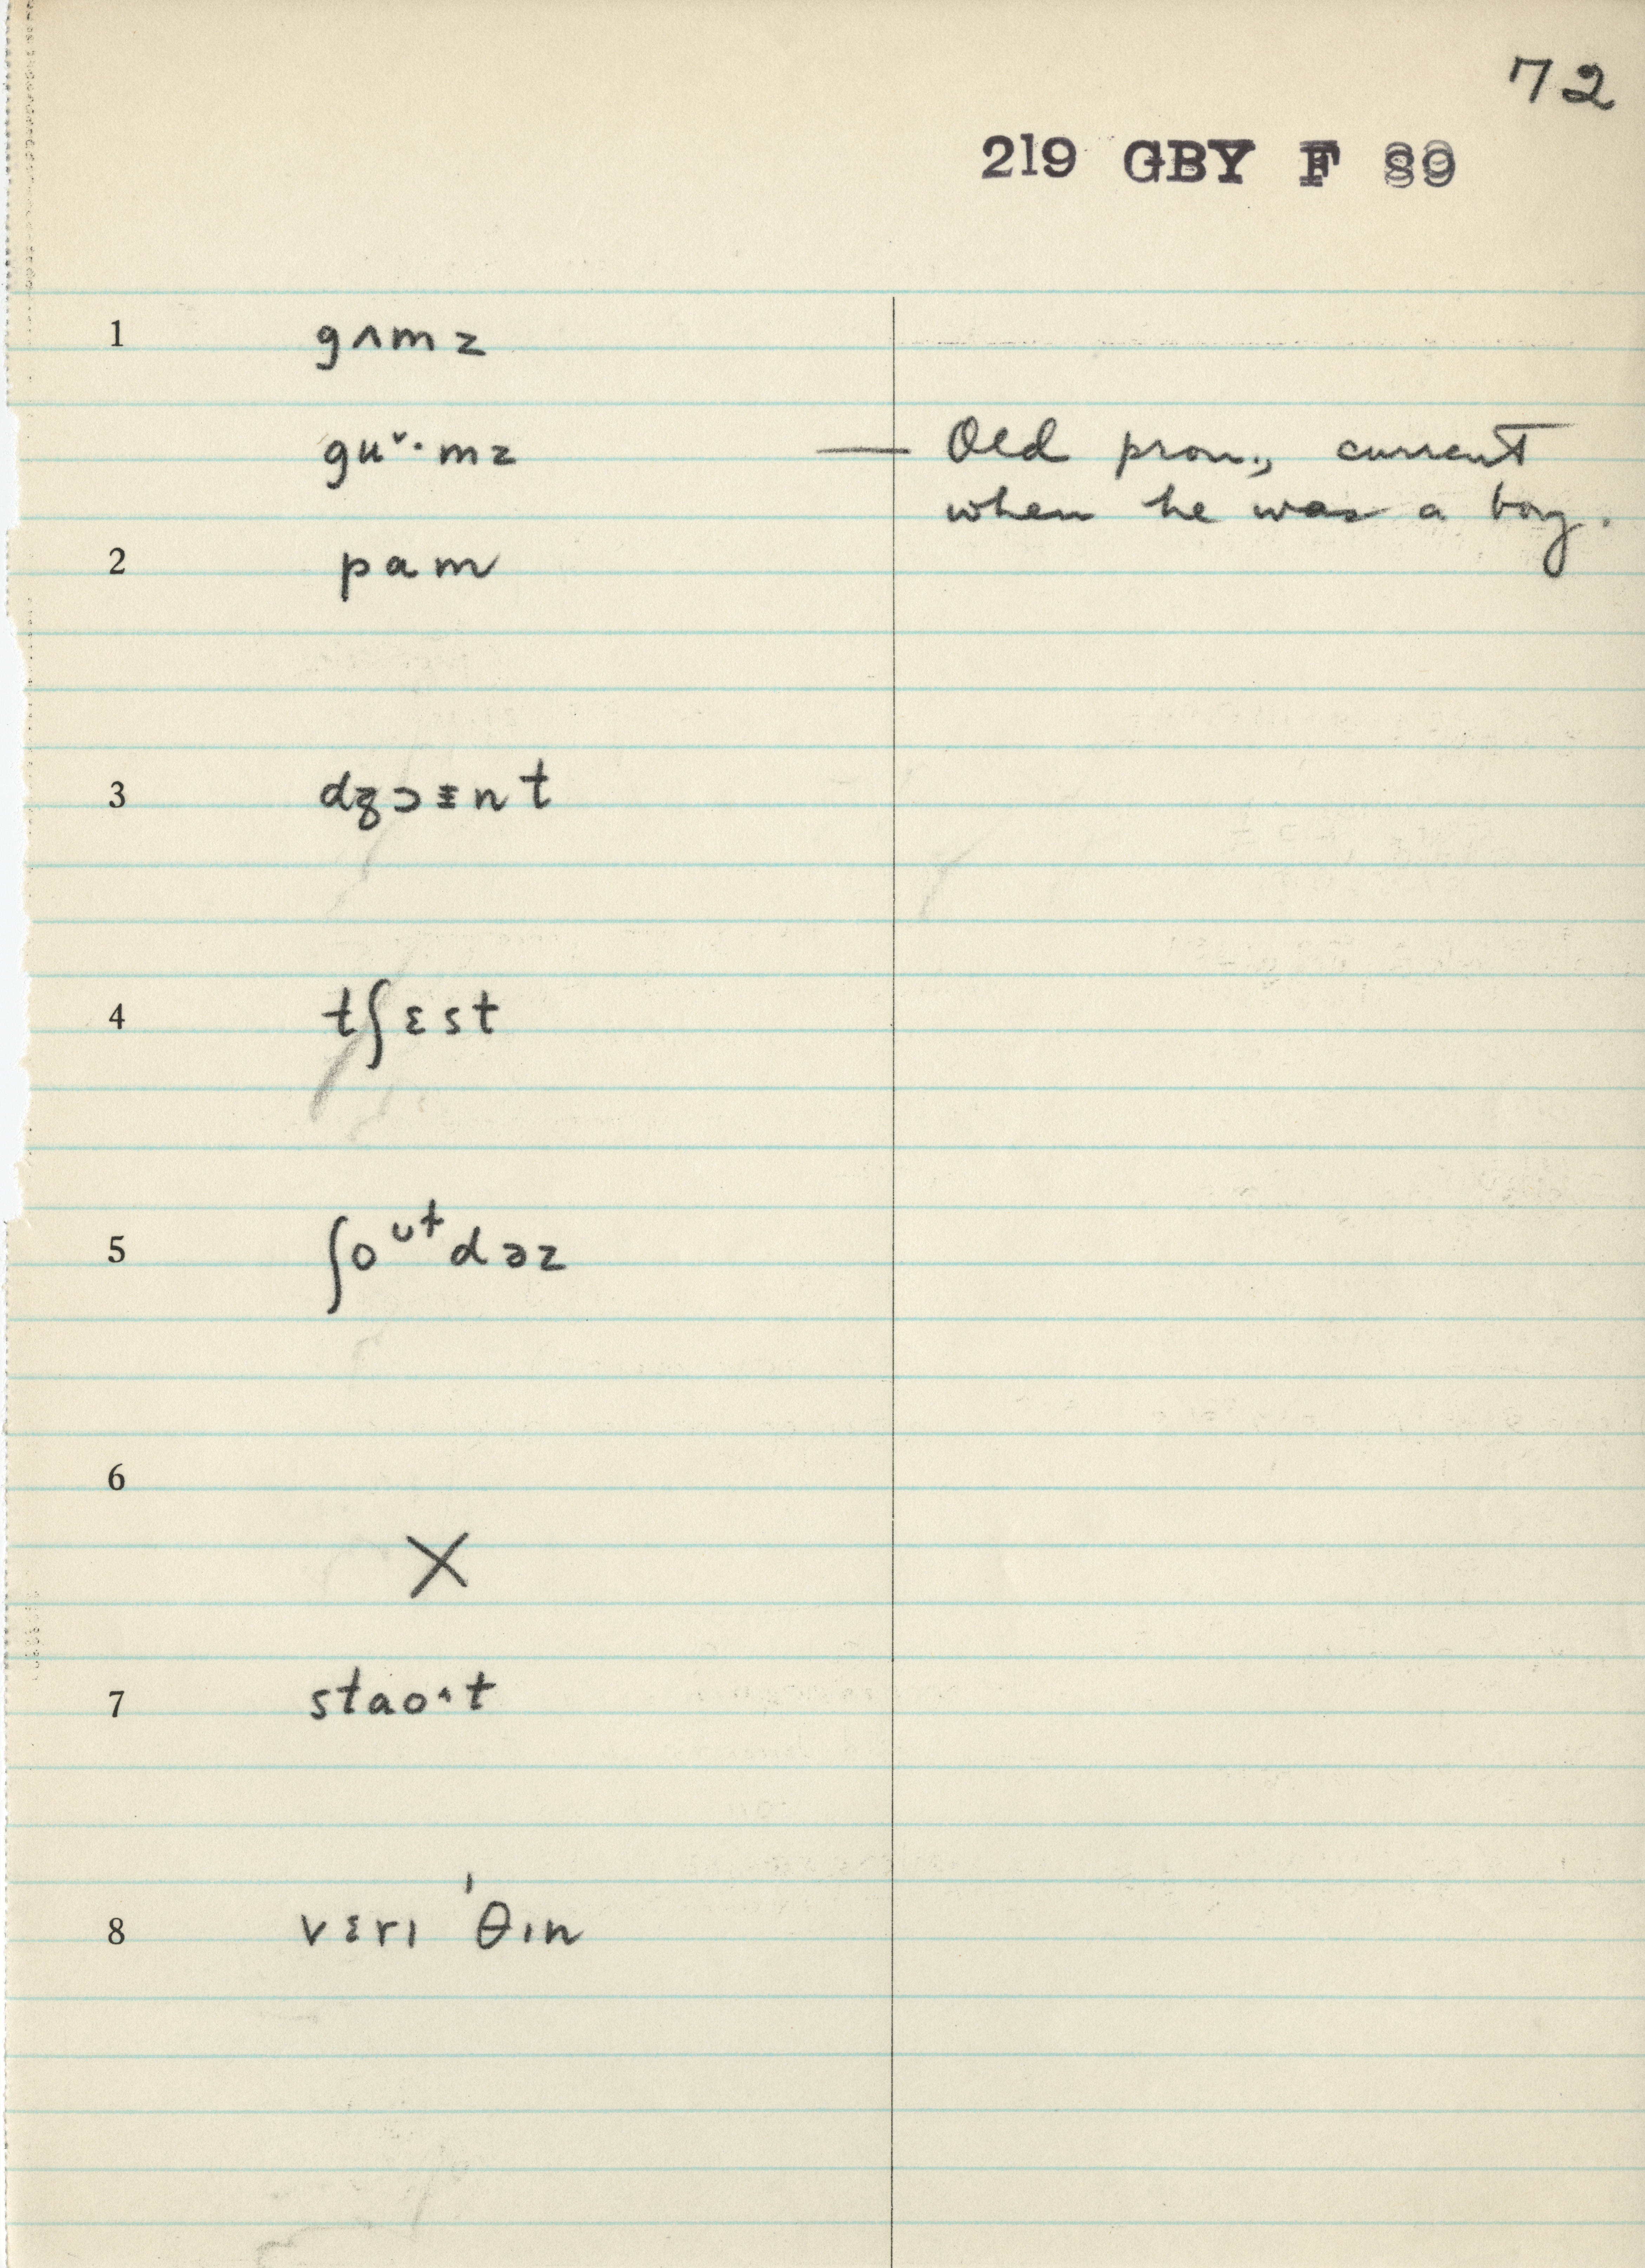 72
219 GBY F 89
1 gʌmz
guᵛ·mz — Old pron., current
when he was a boy.
2 pam
3 dʒɔɨnt
4 tʃɛst
5 ʃoᴜtdəz
6
X
7 staoˑt
8 vɛrɪ ˈθɪn